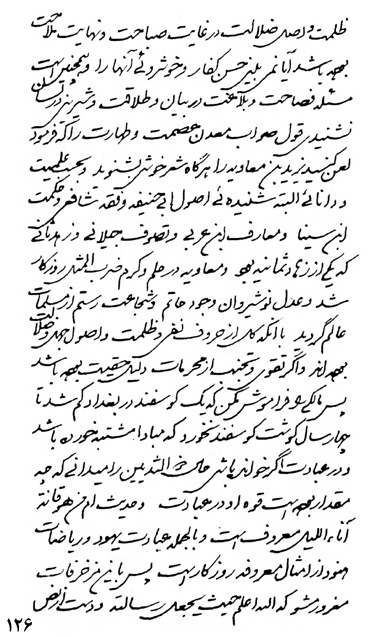 ظلمت و اصل ضلالت در غایت صباحت و نهایت ملاحت
بوده باشد آیا نمی بینی حسن کفار و خوشروئی آنها را و همچنین است
مسئله فصاحت و بلاغت در بیان و طلاقت و شیرینی در لسان
نشنیدی قول صواب معدن عصمت و طهارت را که فرمود
لعن کنید یزید بن معاویه را هرگاه شعر خوش بشنوید و بحسب علمیت
و دانائی البته شنیده ئی اصول ابی حنیفه و فقه شافعی و حکمت
ابن سینا و معارف ابن عربی و تصوف جیلانی و زهد ثانی
که یکی از زهاد ثمانیه بود و معاویه در حلم و کرم ضرب المثل روزگار
شد و عدل نوشیروان وجود حاتم و شجاعت رستم از مسلمات
عالم گردید با آنکه کل از حروف نفی و ظلمت و اصول جهل و ضلالت
بوده اند و اگر تقوی و تجنب از محرمات دلیل حقیت بوده باشد
پس مالکی را فراموش مکن که یک گوسفند در بغداد گم شد تا
چهار سال گوشت گوسفند نخورد که مبادا مشتبه خورده باشد
و در عبادت اگر خوانده باشی حال ذو الثدیین را میدانی که چه
مقدار بوده است قوه او در عبادت و حدیث ام من هو قانت
آناء اللیل معروف است و بالجمله عبادت یهود و ریاضات
هنود از امثال معروفه روزگار است پس باین مزخرفات
مغرور مشو که الله اعلم حیث یجعل رسالته و دست از نص
۱۲۶